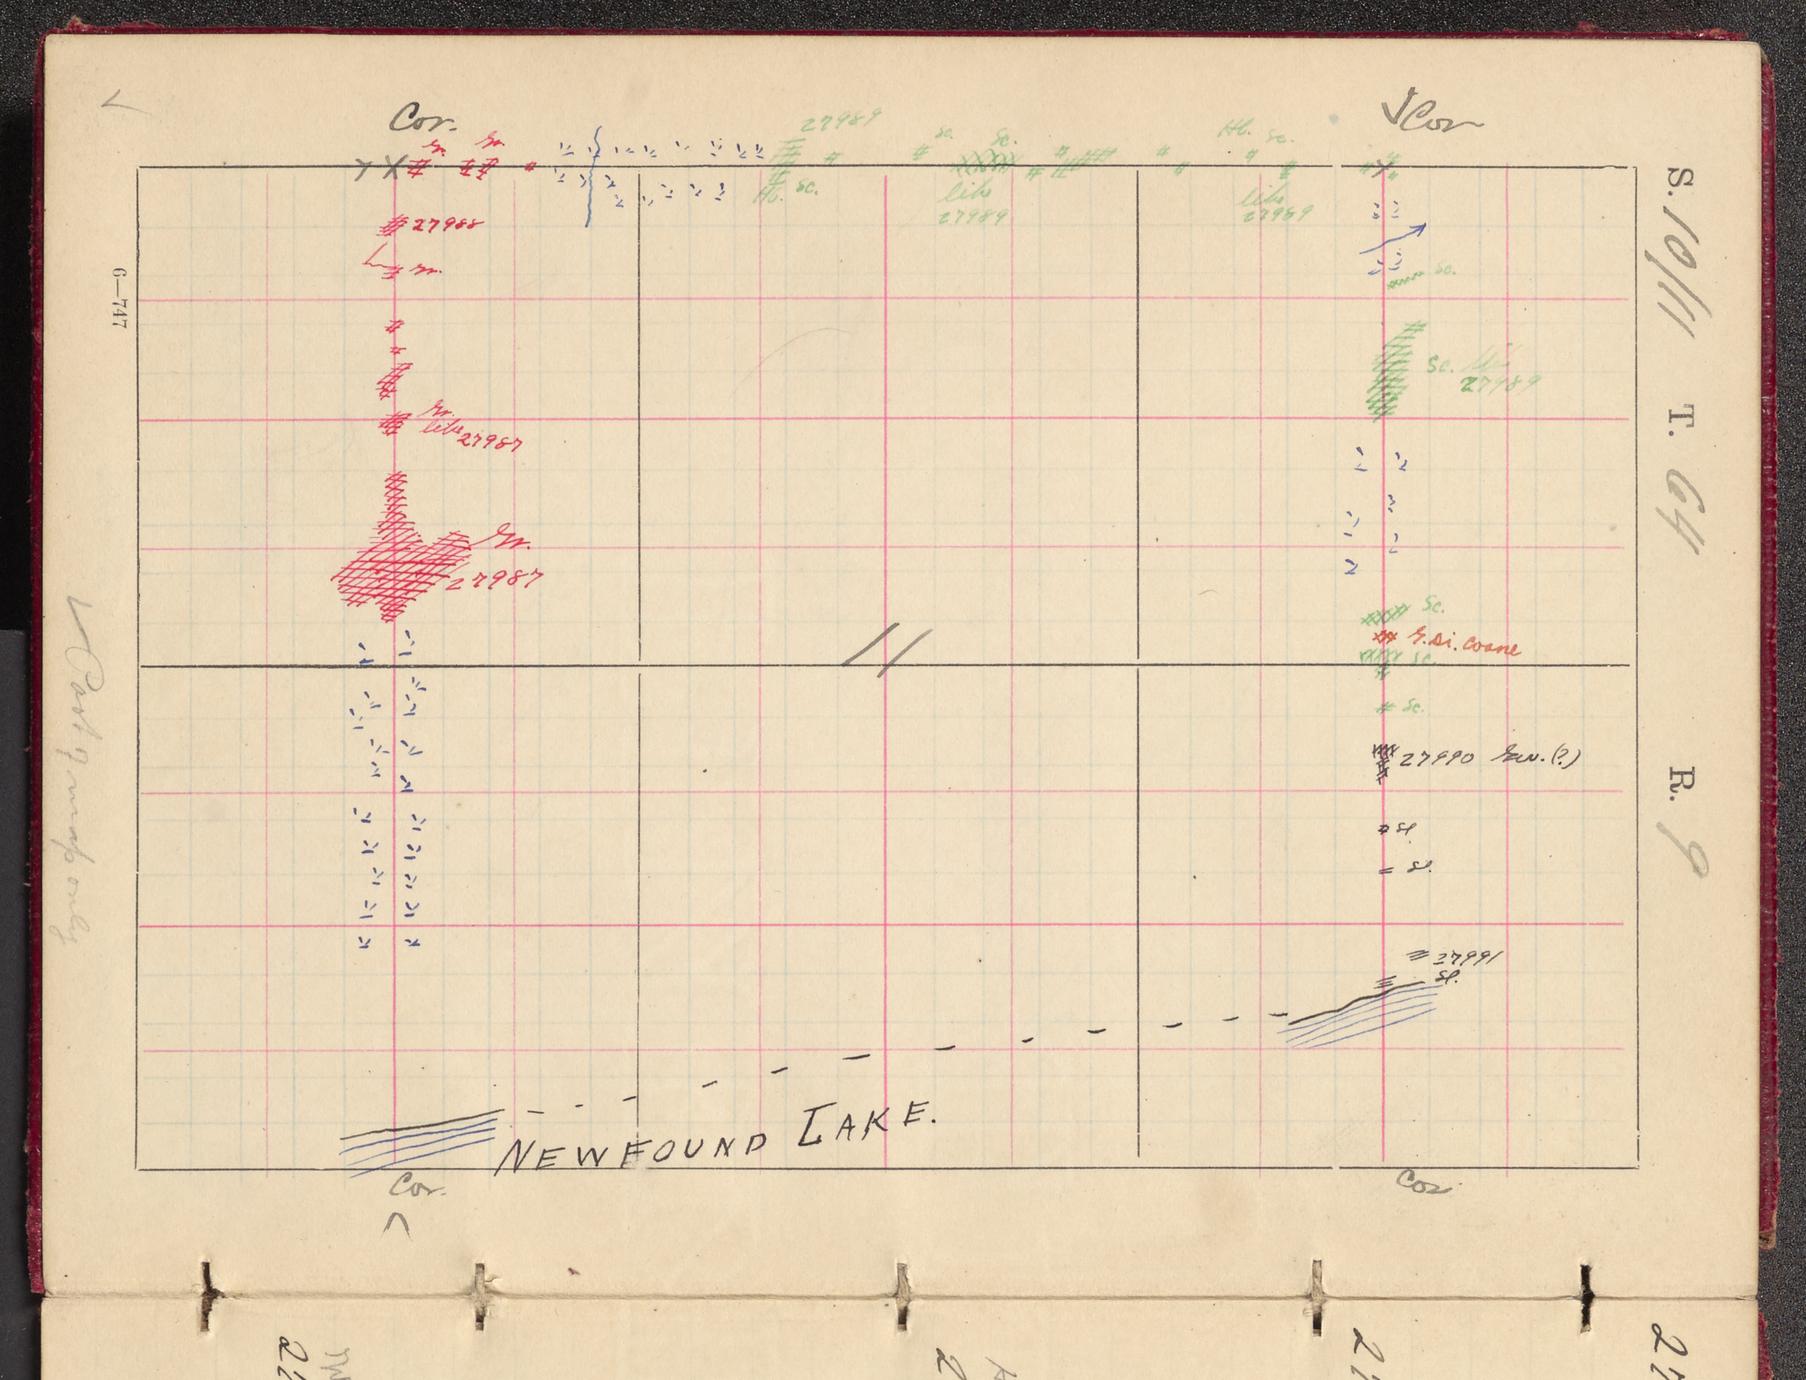 Cor.
Cor
27989
Gr. Gr.
Sc. Sc.
Hb. Sc.
Hb. Sc.
like
27989
like
27989
27988
Gr.
Sc.
Sc. like
27989
Gr.
like 27987
Gr.
27987
Sc.
Sc.
11
Sc.
27990 Grn.(?)
sl.
sl.
27991
sl.
NEWFOUND LAKE.
Cor.
Cor.
S. 10/11 T. 64 R. 9
6—747
Part of map only